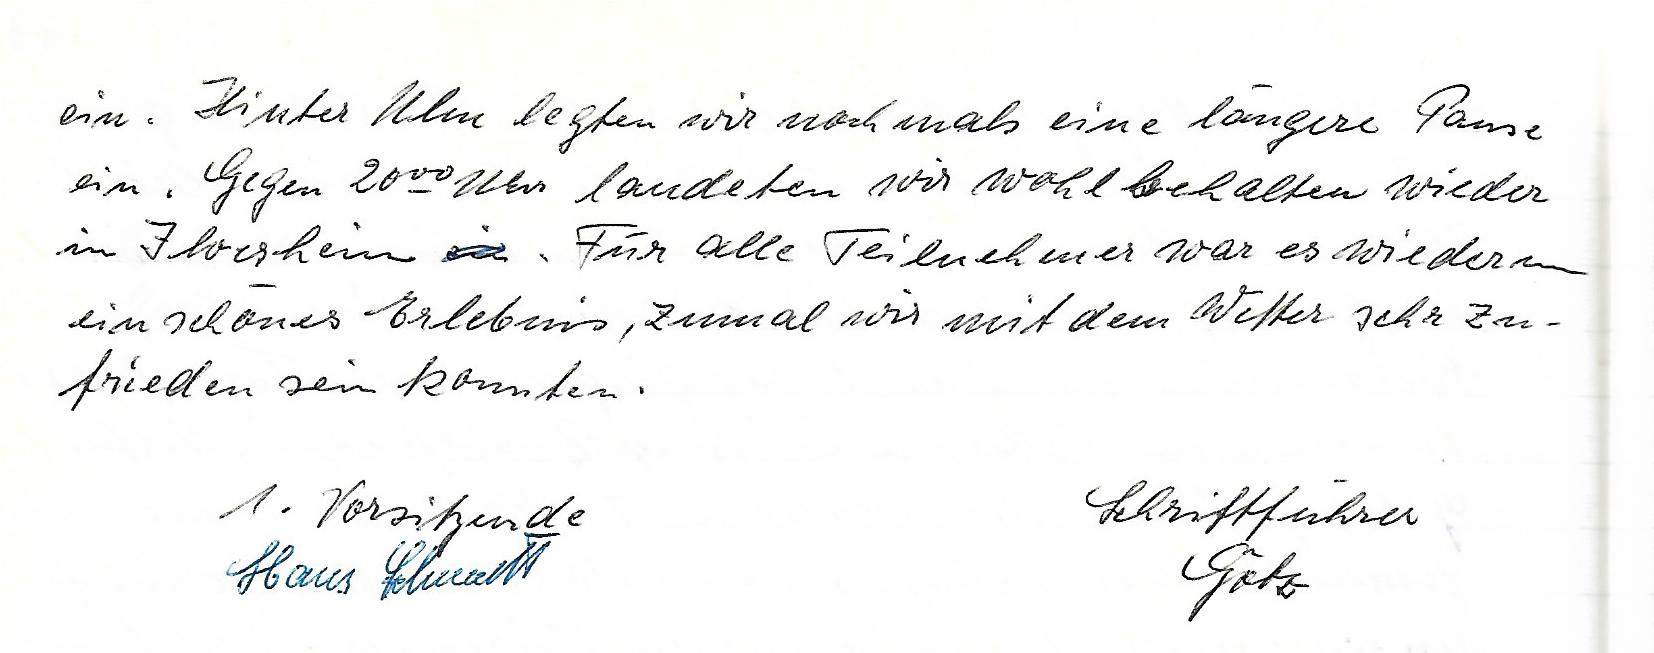 ein. Hinter Ulm legten wir nochmals eine längere Pause
ein. Gegen 20⁰⁰ Uhr landeten wir wohlbehalten wieder
in Ilvesheim ein. Für alle Teilnehmer war es wiederum
ein schönes Erlebnis, zumal wir mit dem Wetter sehr zu-
frieden sein konnten.
1. Vorsitzende
Schriftführer
Hans
Götz